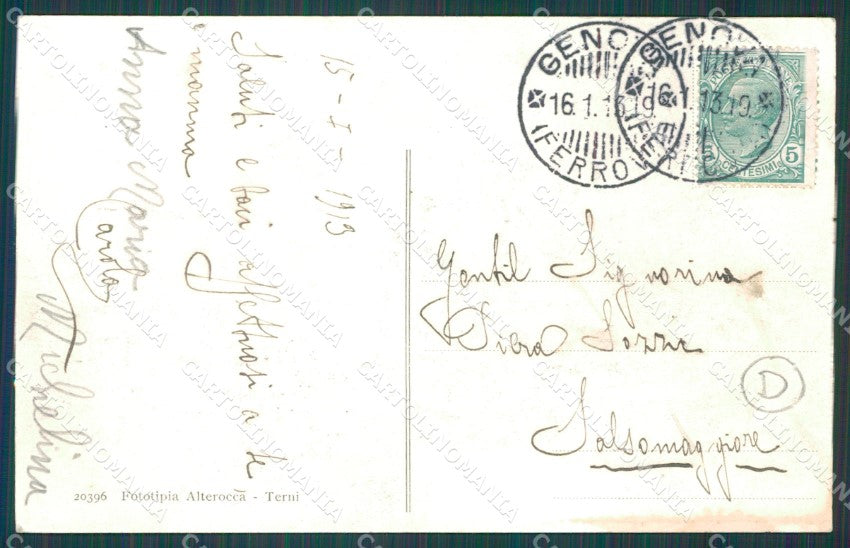 15-I-1913
Saluti e baci affettuosi a te
e mamma
Anna Maria
Carla
Michelina
GENOVA
16.1.13.19
(FERROVIA
GENOVA
16.1.13.19
(FERROVIA
5
CENTESIMI
Gentil Signorina
Piera Pozzi
Salsomaggiore
D
20396 Fototipia Alterocca - Terni
CARTOLINOMANIA